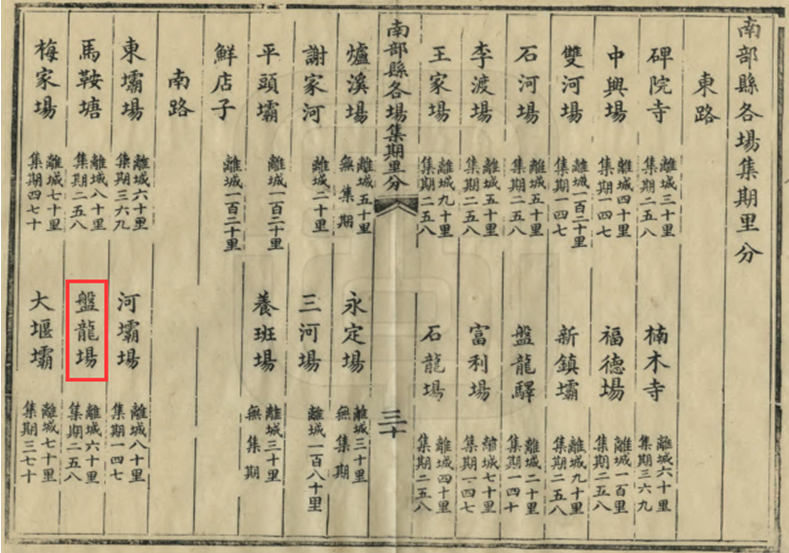 南部縣各場集期里分
東路
碑院寺 離城三十里 集期二五八
楠木寺 離城六十里 集期三六九
中興場 離城四十里 集期一四七
福德場 離城一百里 集期二五八
雙河場 離城一百二十里 集期一四七
新鎮壩 離城九十里 集期二五八
石河場 離城五十里 集期二五八
盤龍驛 離城二十里 集期一四十
李渡場 離城五十里 集期二五八
富利場 離城七十里 集期一四七
王家場 離城九十里 集期二五八
石龍場 離城四十里 集期二五八
南部縣各場集期里分
三十
爐溪場 離城五十里 無集期
永定場 離城三十里 無集期
謝家河 離城二十里
三河場 離城一百八十里
平頭壩 離城一百二十里
養班場 離城三十里 無集期
鮮店子 離城一百二十里
南路
東壩場 離城六十里 集期三六九
河壩場 離城八十里 集期一四七
馬鞍塘 離城八十里 集期二五八
盤龍場 離城六十里 集期二五八
梅家場 離城七十里 集期四七十
大堰壩 離城七十里 集期三七十